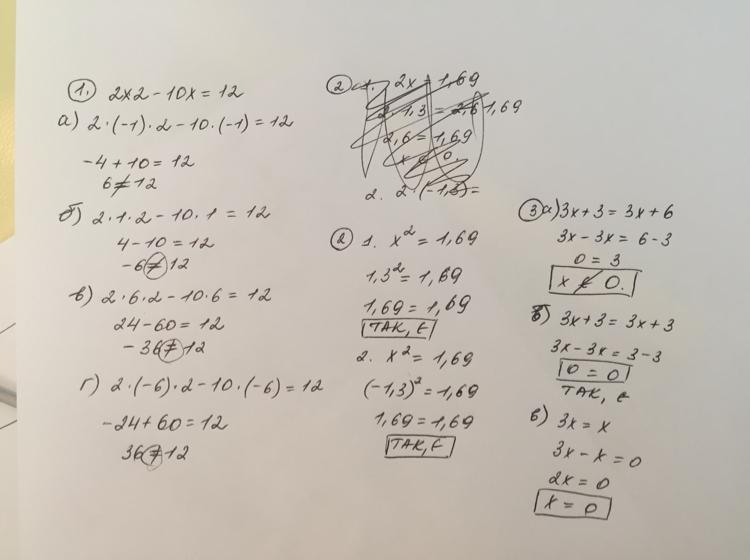 1. 2x2 - 10x = 12
а) 2·(-1)·2 - 10·(-1) = 12
-4 + 10 = 12
6 ≠ 12
б) 2·1·2 - 10·1 = 12
4 - 10 = 12
-6 ≠ 12
в) 2·6·2 - 10·6 = 12
24 - 60 = 12
-36 ≠ 12
г) 2·(-6)·2 - 10·(-6) = 12
-24 + 60 = 12
36 ≠ 12
2 1. 2x = 1,69
2·1,3 = 2,6 1,69
2,6 = 1,69
2. 2·(-1,3) =
2 1. x² = 1,69
1,3² = 1,69
1,69 = 1,69
ТАК, Є
2. x² = 1,69
(-1,3)² = 1,69
1,69 = 1,69
ТАК, Є
3 а) 3x + 3 = 3x + 6
3x - 3x = 6 - 3
0 = 3
x ∉ 0.
б) 3x + 3 = 3x + 3
3x - 3x = 3 - 3
0 = 0
ТАК, Є
в) 3x = x
3x - x = 0
2x = 0
x = 0